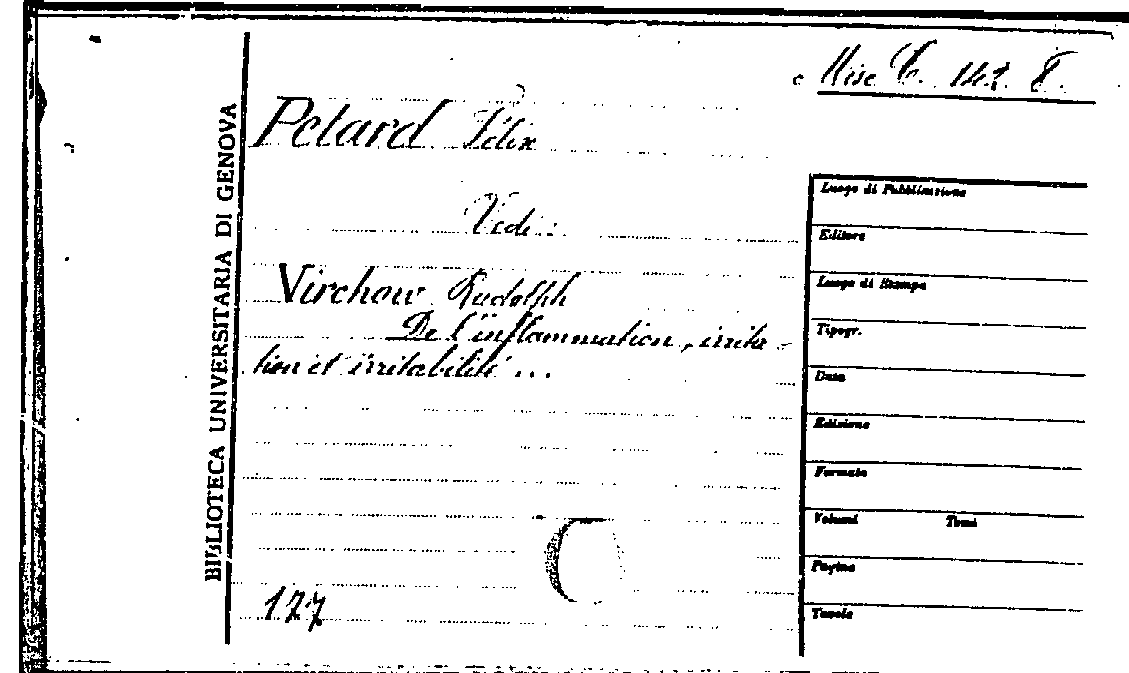 Misc. C. 142. 8.
Petard Félix
Vedi:
Virchow Rudolph
De l'inflammation, irrita-
tion et irritabilité ...
127
BIBLIOTECA UNIVERSITARIA DI GENOVA
Luogo di Pubblicazione
Editore
Luogo di Stampa
Tipogr.
Data
Edizione
Formato
Volumi Tomi
Pagine
Tavole